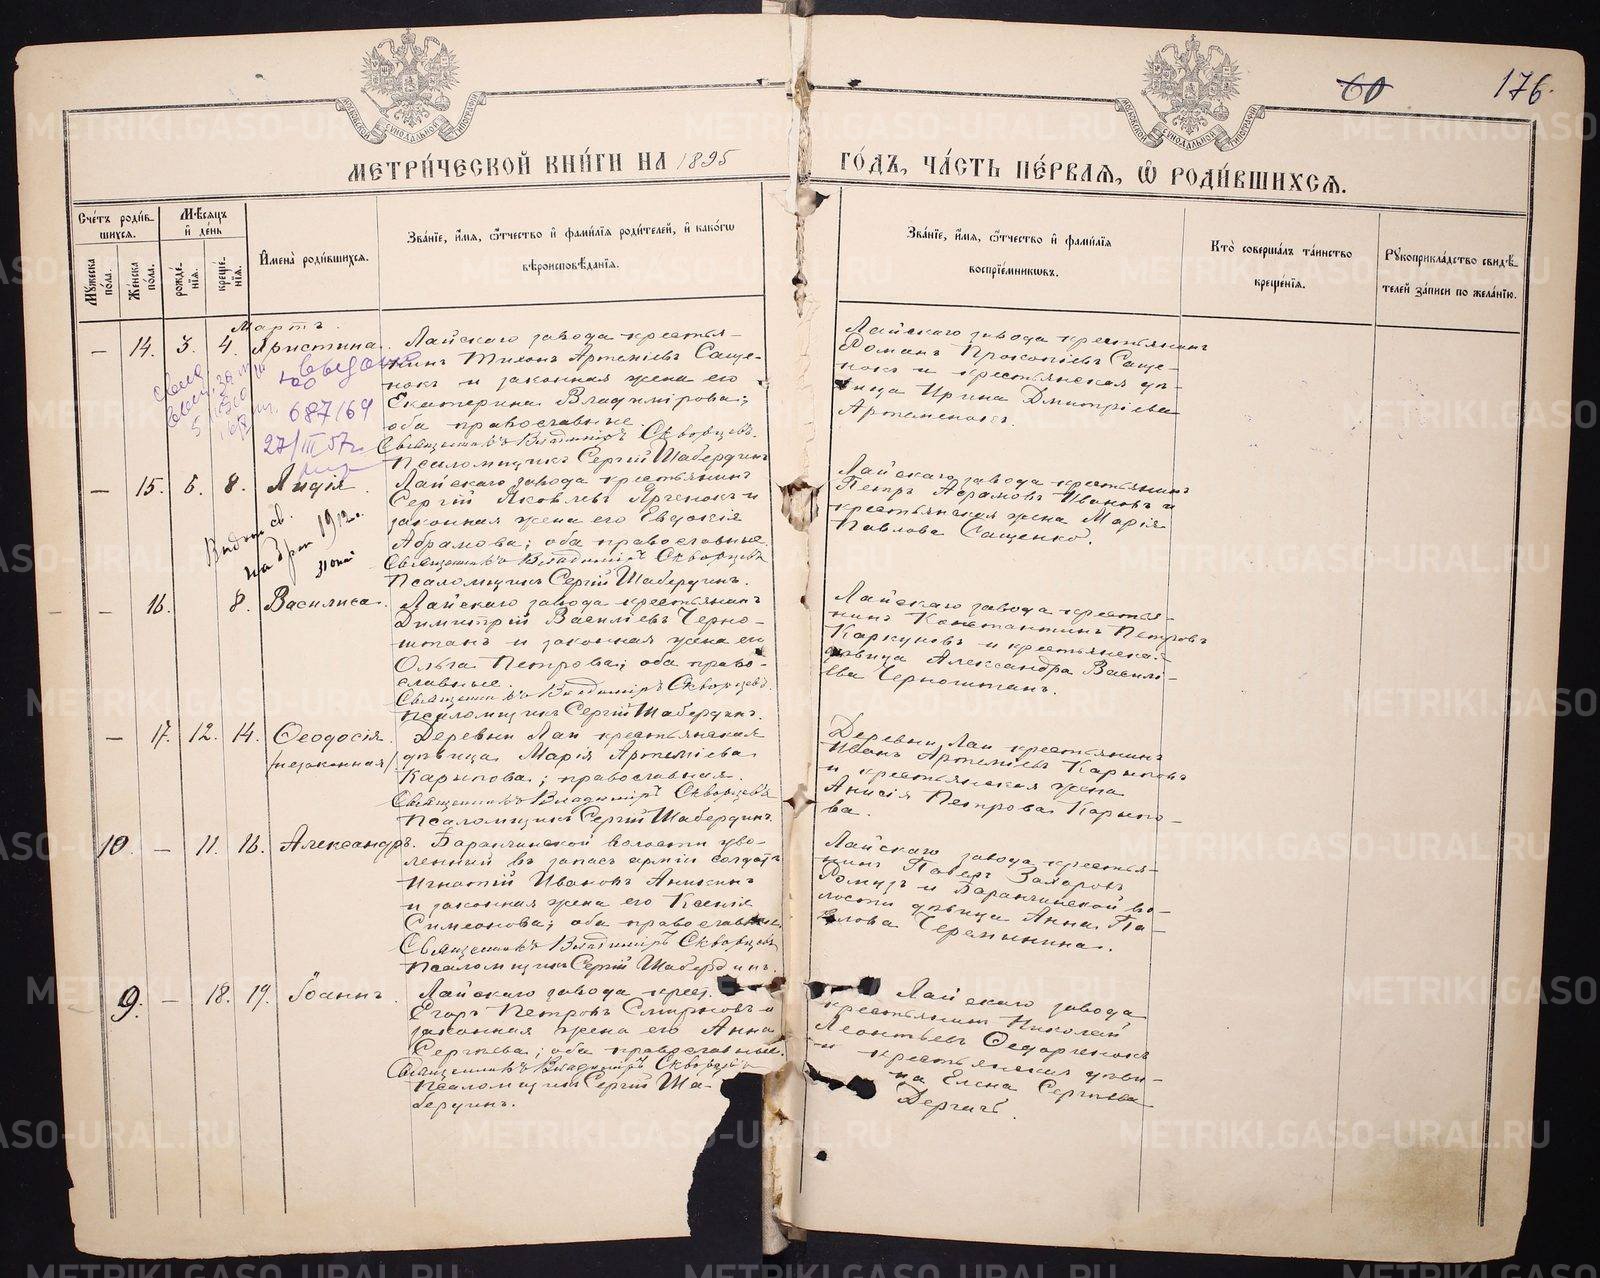 60 176.
МЕТРИ́ЧЕСКОЙ КНИ́ГИ НА 1895 ГО́ДЪ, ЧА́СТЬ ПЕ́РВАѦ, Ѽ РОДИ́ВШИХСѦ.
Сче́тъ роди́вшихсѧ.
Мꙋ́жеска по́ла.
Же́нска по́ла.
Мѣ́сѧцъ и҆ де́нь
рожде́нїѧ.
креще́нїѧ.
И҆мена̀ роди́вшихсѧ.
Зва́нїе, и҆́мѧ, ѻ҆́тчество и҆ фами́лїѧ роди́телей, и҆ како́гѡ
вѣроисповѣ́данїѧ.
Зва́нїе, и҆́мѧ, ѻ҆́тчество и҆ фами́лїѧ
воспрїе́мникѡвъ.
Кто̀ соверша́лъ та́инство
креще́нїѧ.
Рꙋкоприкла́дство свидѣ́телей за́писи по жела́нїю.
Мартъ.
— 14. 3. 4. Христина.
Лайскаго завода крестья-
нинъ Тихонъ Артеміевъ Саще-
нокъ и законная жена его
Екатерина Владимірова;
оба православные.
Священникъ Владиміръ Скворцовъ.
Псаломщикъ Сергій Шабердинъ
Лайскаго завода крестьянинъ
Романъ Прокопіевъ Саще-
нокъ и крестьянская дѣ-
вица Ирина Дмитріева
Артеменокъ.
687169
27/III 57г.
— 15. 5. 8. Лидія.
Лайскаго завода крестьянинъ
Сергій Яковлевъ и
законная жена его Евдокія
Абрамова; оба православные.
Священникъ Владиміръ Скворцовъ
Псаломщикъ Сергій Шабердинъ.
Лайскаго завода крестьянинъ
Петръ Абрамовъ Ивановъ и
крестьянская жена Марія
Павлова Сащенко.
св.
на бракъ 1912г.
31 мая
— 16. 8. Василиса.
Лайскаго завода крестьянинъ
Димитрій Василіевъ Черно-
штанъ и законная жена его
Ольга Петрова; оба право-
славные.
Священникъ Владиміръ Скворцовъ.
Псаломщикъ Сергій Шабердинъ.
Лайскаго завода крестья-
нинъ Константинъ Петровъ
Каркуновъ и крестьянска.
дѣвица Александра Василі-
ева Черноштанъ.
— 17. 12. 14. Ѳеодосія
/незаконная/
Деревни Лаи крестьянская
дѣвица Марія Артеміева
Карпова; православная.
Священникъ Владиміръ Скворцовъ
Псаломщикъ Сергій Шабердинъ.
Деревни Лаи крестьянинъ
Иванъ Артеміевъ Карповъ
и крестьянская жена
Анисія Петрова Карпо-
ва.
10. — 11. 16. Александръ.
Баранчинской волости уво-
ленный въ запасъ арміи солдатъ
Игнатій Ивановъ Аникинъ
и законная жена его Ксенія
Симеонова; оба православные
Священникъ Владиміръ Скворцовъ
Псаломщикъ Сергій Шабердинъ.
Лайскаго завода крестья-
нинъ Павелъ Захаровъ
и Баранчинской во-
лости дѣвица Анна Па-
влова Черемнинина.
9. — 18. 19. Іоаннъ.
Лайскаго завода крест.
Егоръ Петровъ Смирновъ и
законная жена его Анна
Сергѣева; оба православные.
Священникъ Владиміръ Скворцовъ
Псаломщикъ Сергій Ша-
бердинъ.
Лайскаго завода
крестьянинъ Николай
Леонтьевъ Ѳедорченокъ
и крестьянская дѣви-
ца Елена Сергѣева
Дергачъ.
METRIKI.GASO-URAL.RU